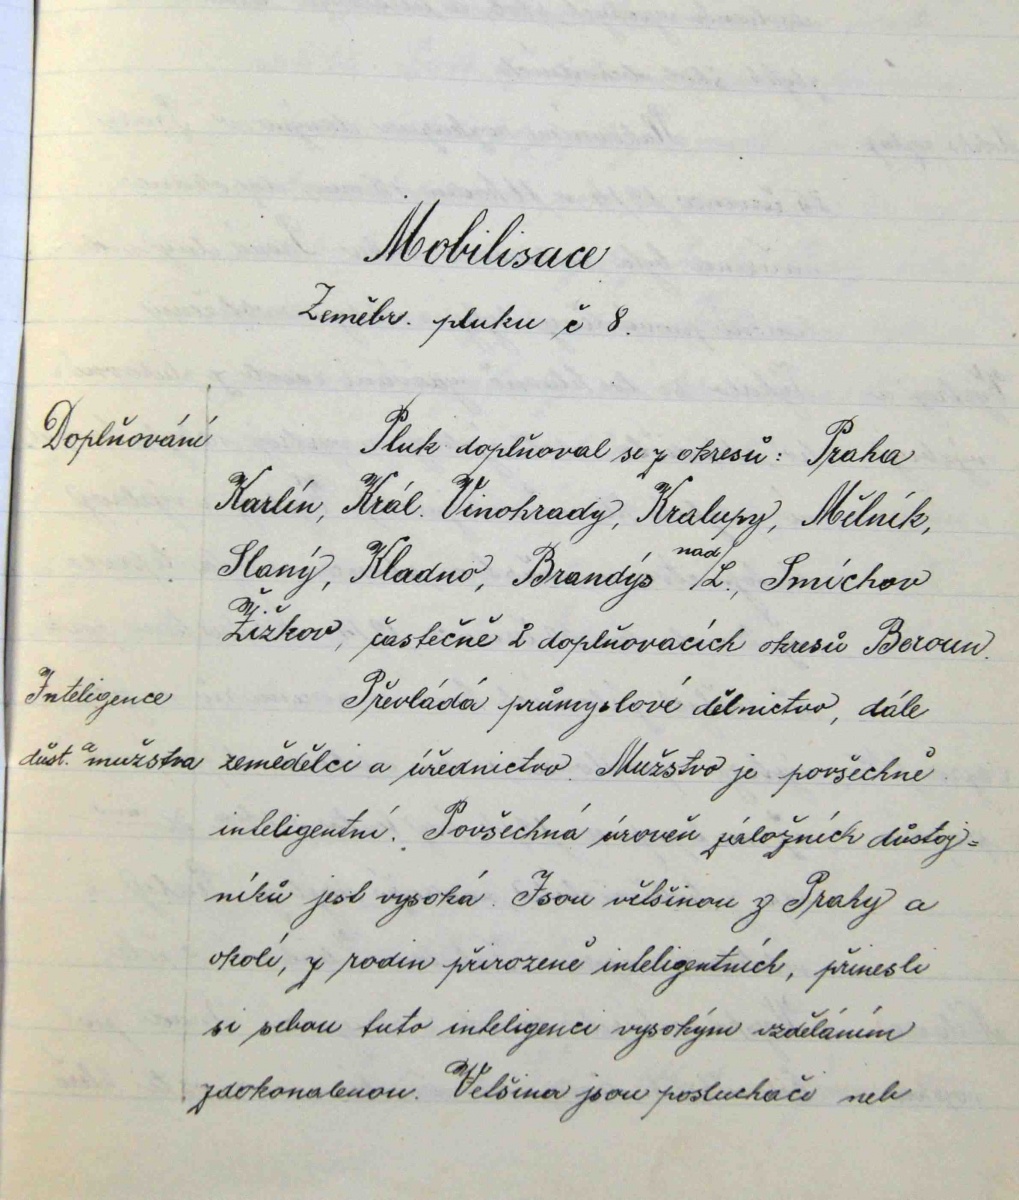 Mobilisace
Zeměbr. pluku č 8.
Doplňování
Pluk doplňoval se z okresů: Praha
Karlín, Král. Vinohrady, Kralupy, Mělník,
Slaný, Kladno, Brandýs nad/L., Smíchov
Žižkov, částečně z doplňovacích okresů Beroun.
Inteligence
důst. a mužstva
Převládá průmyslové dělnictvo, dále
zemědělci a úřednictvo. Mužstvo je povšechně
inteligentní. Povšechná úroveň záložních důstoj=
níků jest vysoká. Jsou většinou z Prahy a
okolí, z rodin přirozeně inteligentních, přinesli
si sebou tuto inteligenci vysokým vzděláním
zdokonalenou. Většina jsou posluchači neb